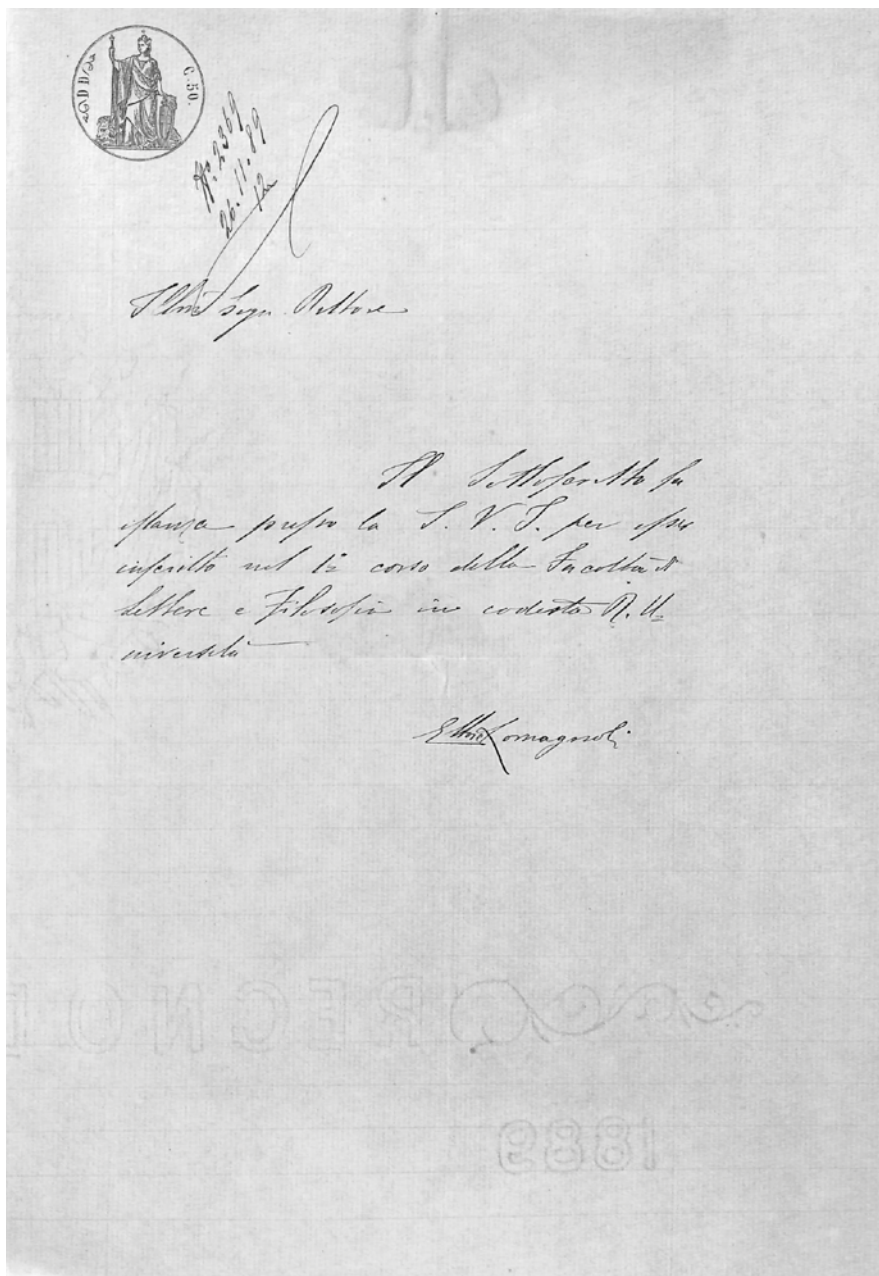 C. 50.
N.º 2369
26. 11. 89
Illmo Sigr. Rettore
Il Sottoscritto fa
istanza presso la S. V. I. per esser
inscritto nel 1º corso della Facoltà di
Lettere e Filosofia in codesta R. U-
niversità
Ettore Romagnoli
1889